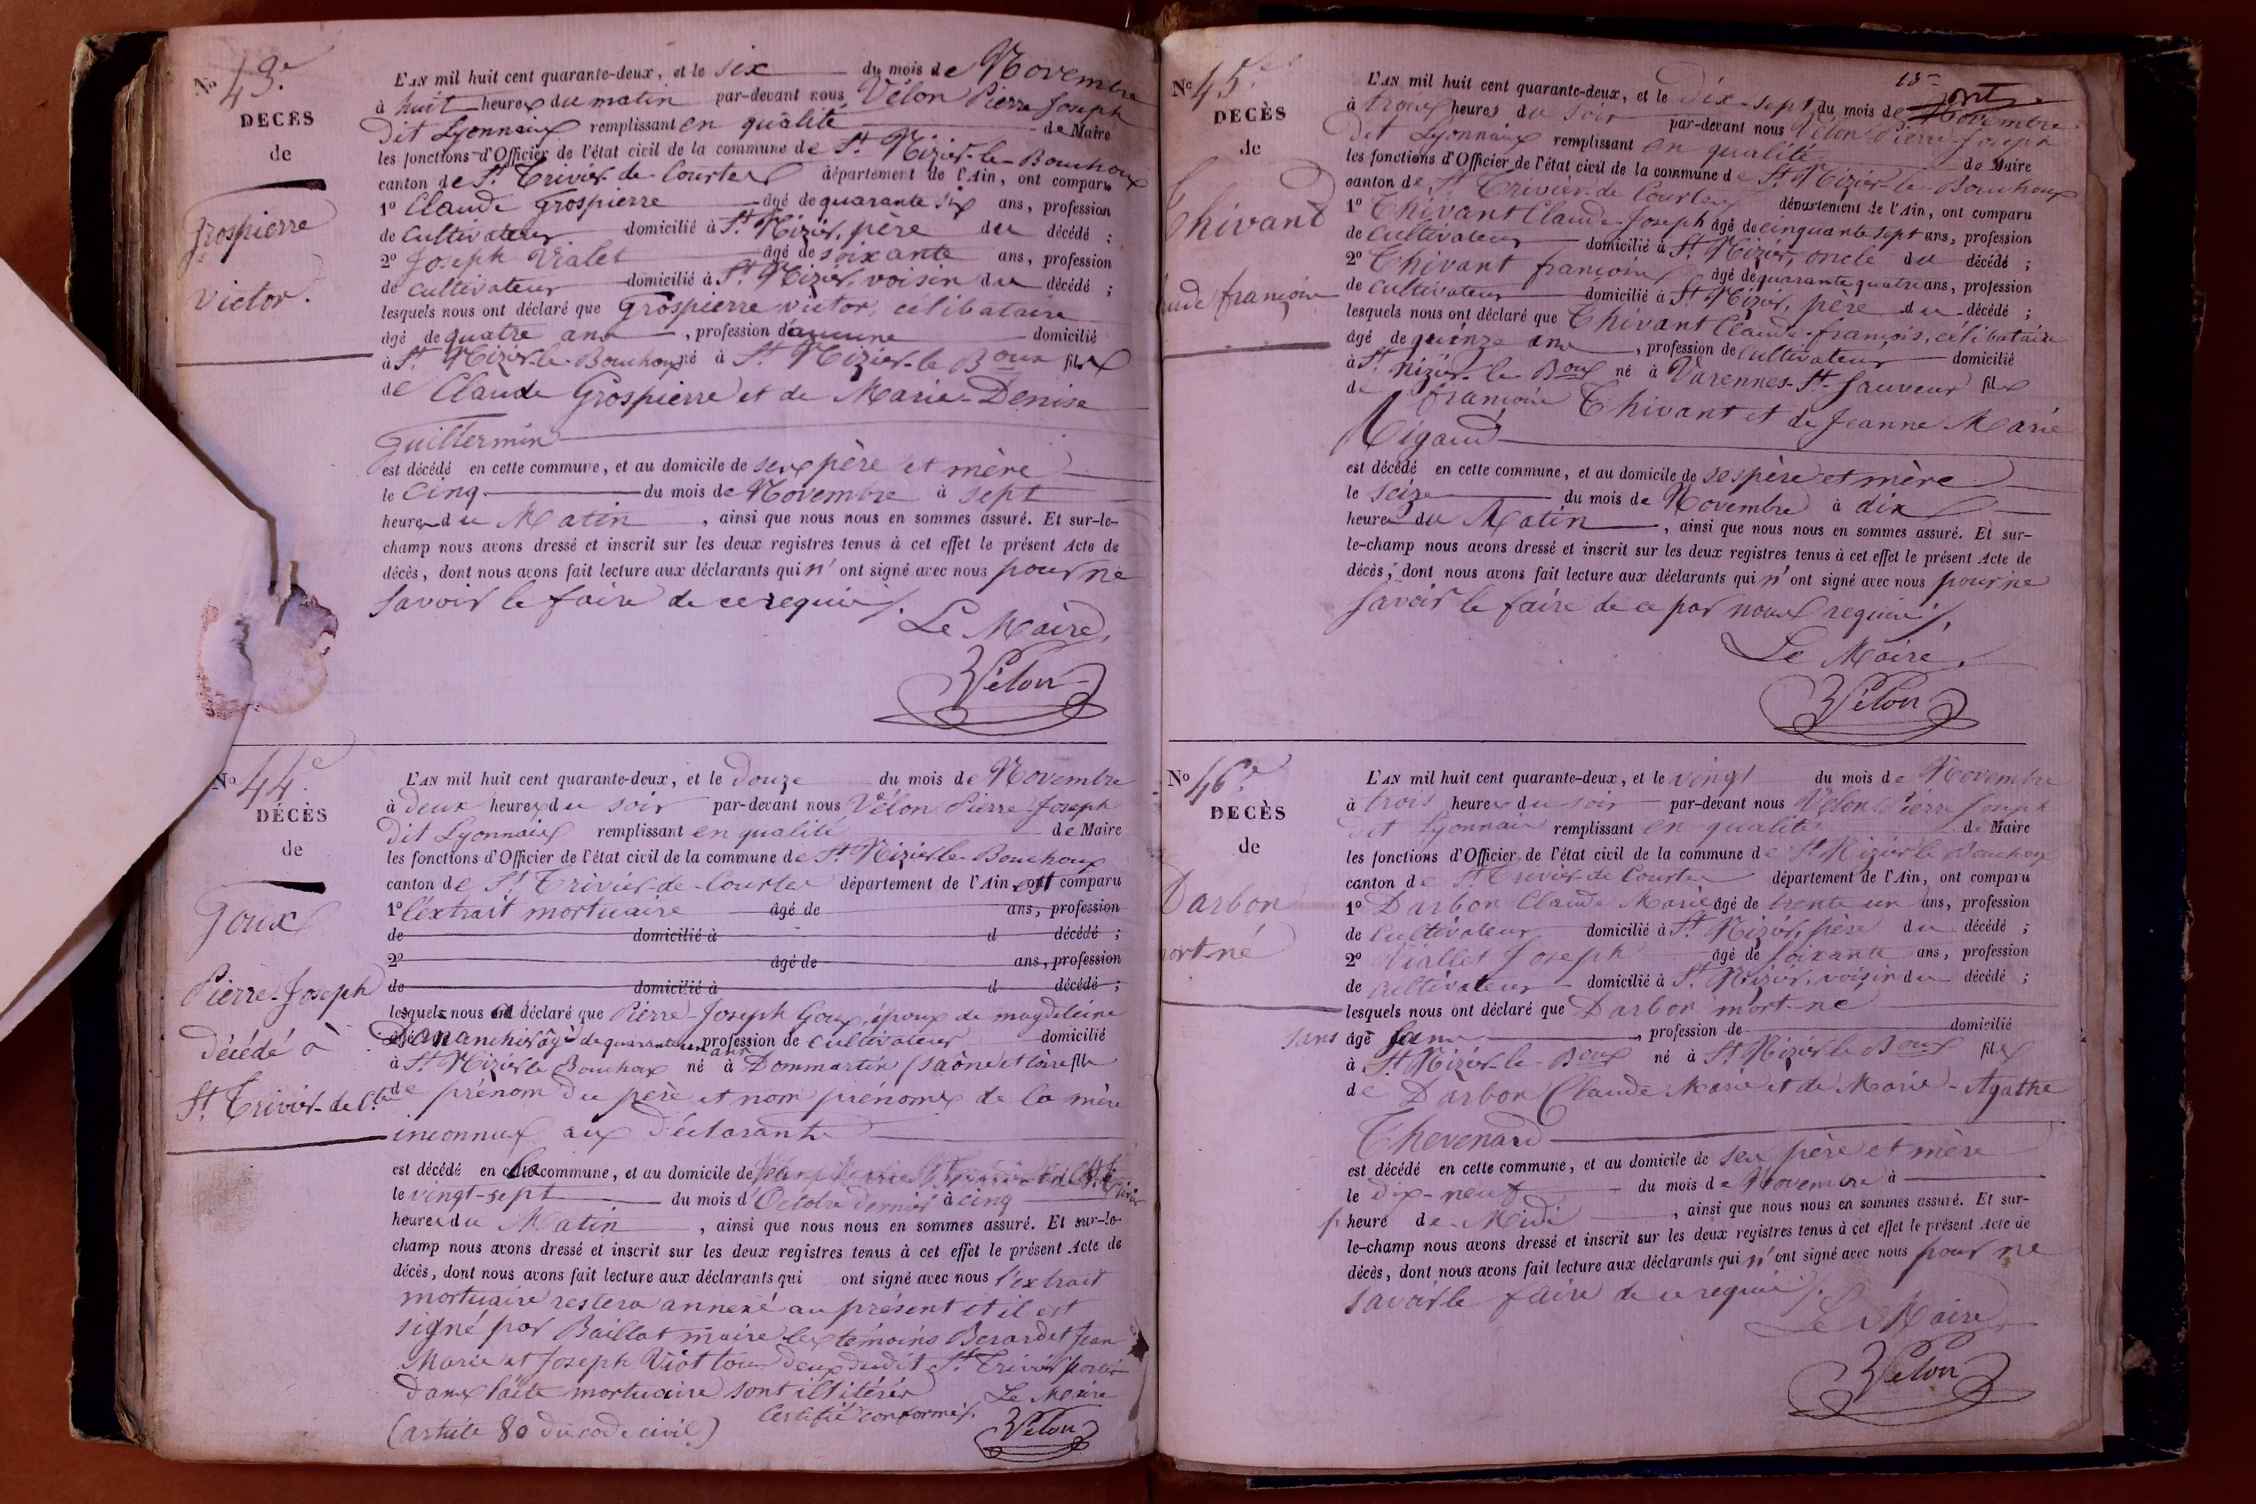 No 43e.
DÉCÈS
de
Grospierre
Victor.
L'AN mil huit cent quarante-deux, et le six du mois de Novembre
à huit heures du matin par-devant nous Vélon Pierre Joseph
dit Lyonnais remplissant en qualité de Maire
les fonctions d'Officier de l'état civil de la commune de St. Nizier-le-Bouchoux
canton de St. Trivier-de-Courtes département de l'Ain, ont comparu
1º Claude Grospierre âgé de quarante six ans, profession
de cultivateur domicilié à St. Nizier, père du décédé ;
2º Joseph Vialet âgé de soixante ans, profession
de cultivateur domicilié à St. Nizier, voisin du décédé ;
lesquels nous ont déclaré que Grospierre victor, célibataire
âgé de quatre ans, profession d'aucune domicilié
à St. Nizier-le-Bouchoux né à St. Nizier-le-Boux fils
de Claude Grospierre et de Marie-Denise
Guillermin
est décédé en cette commune, et au domicile de ses père et mère
le cinq du mois de Novembre à sept
heures du Matin, ainsi que nous nous en sommes assuré. Et sur-le-
champ nous avons dressé et inscrit sur les deux registres tenus à cet effet le présent Acte de
décès, dont nous avons fait lecture aux déclarants qui n'ont signé avec nous pour ne
savoir le faire de ce requis.
Le Maire,
Vélon
No 44e.
DÉCÈS
de
Goux
Pierre-Joseph
décédé à
St. Trivier-de-Ctes
L'AN mil huit cent quarante-deux, et le douze du mois de Novembre
à deux heures du soir par-devant nous Vélon Pierre Joseph
dit Lyonnais remplissant en qualité de Maire
les fonctions d'Officier de l'état civil de la commune de St. Nizier-le-Bouchoux
canton de St. Trivier-de-Courtes département de l'Ain, ont comparu
1º l'extrait mortuaire âgé de ans, profession
de domicilié à d décédé ;
2º âgé de ans, profession
de domicilié à d décédé ;
lesquels nous ont déclaré que Pierre-Joseph Goux, époux de magdeleine
âgé de quarante ans profession de cultivateur domicilié
à St. Nizier-le-Bouchoux né à Dommartin (Saône et Loire) fils
de prénom du père et nom prénoms de la mère
inconnus aux déclarants
est décédé en la commune, et au domicile de
le vingt-sept du mois d'Octobre dernier à cinq
heures du Matin, ainsi que nous nous en sommes assuré. Et sur-le-
champ nous avons dressé et inscrit sur les deux registres tenus à cet effet le présent Acte de
décès, dont nous avons fait lecture aux déclarants qui ont signé avec nous l'extrait
mortuaire restera annexé au présent et il est
signé par Baillat maire les témoins Berardet Jean
Marie et Joseph Viot tous deux dudit St. Trivier
dans l'acte mortuaire sont illitérés Le Maire
(article 80 du code civil) Certifié conforme.
Vélon
No 45e.
DÉCÈS
de
Thivant
Claude françois
L'AN mil huit cent quarante-deux, et le dix-sept du mois de Novembre
à trois heures du soir par-devant nous Vélon Pierre-Joseph
dit Lyonnais remplissant en qualité de Maire
les fonctions d'Officier de l'état civil de la commune de St. Nizier-le-Bouchoux
canton de St. Trivier-de-Courtes département de l'Ain, ont comparu
1º Thivant Claude-Joseph âgé de cinquante sept ans, profession
de cultivateur domicilié à St. Nizier, oncle du décédé ;
2º Thivant françois âgé de quarante quatre ans, profession
de cultivateur domicilié à St. Nizier, père du décédé ;
lesquels nous ont déclaré que Thivant Claude-françois, célibataire
âgé de quinze ans, profession de cultivateur domicilié
à St. Nizier-le-Boux né à Varennes-St-Sauveur fils
de françois Thivant et de Jeanne Marie
Rigaud
est décédé en cette commune, et au domicile de ses père et mère
le seize du mois de Novembre à dix
heures du Matin, ainsi que nous nous en sommes assuré. Et sur-
le-champ nous avons dressé et inscrit sur les deux registres tenus à cet effet le présent Acte de
décès, dont nous avons fait lecture aux déclarants qui n'ont signé avec nous pour ne
savoir le faire de ce par nous requis.
Le Maire,
Vélon
No 46e.
DÉCÈS
de
Darbon
mort-né
L'AN mil huit cent quarante-deux, et le vingt du mois de Novembre
à trois heures du soir par-devant nous Vélon Pierre Joseph
dit Lyonnais remplissant en qualité de Maire
les fonctions d'Officier de l'état civil de la commune de St. Nizier-le-Bouchoux
canton de St. Trivier-de-Courtes département de l'Ain, ont comparu
1º Darbon Claude Marie âgé de trente un ans, profession
de cultivateur domicilié à St. Nizier, père du décédé ;
2º Viallet Joseph âgé de soixante ans, profession
de cultivateur domicilié à St. Nizier, voisin du décédé ;
lesquels nous ont déclaré que Darbon mort-né
sans âgé profession de domicilié
à St. Nizier-le-Boux né à St. Nizier-le-Boux fils
de Darbon Claude Marie et de Marie-Agathe
Thevenard
est décédé en cette commune, et au domicile de ses père et mère
le dix-neuf du mois de Novembre à
heure de Midi, ainsi que nous nous en sommes assuré. Et sur-
le-champ nous avons dressé et inscrit sur les deux registres tenus à cet effet le présent Acte de
décès, dont nous avons fait lecture aux déclarants qui n'ont signé avec nous pour ne
savoir le faire de ce requis.
Le Maire,
Vélon